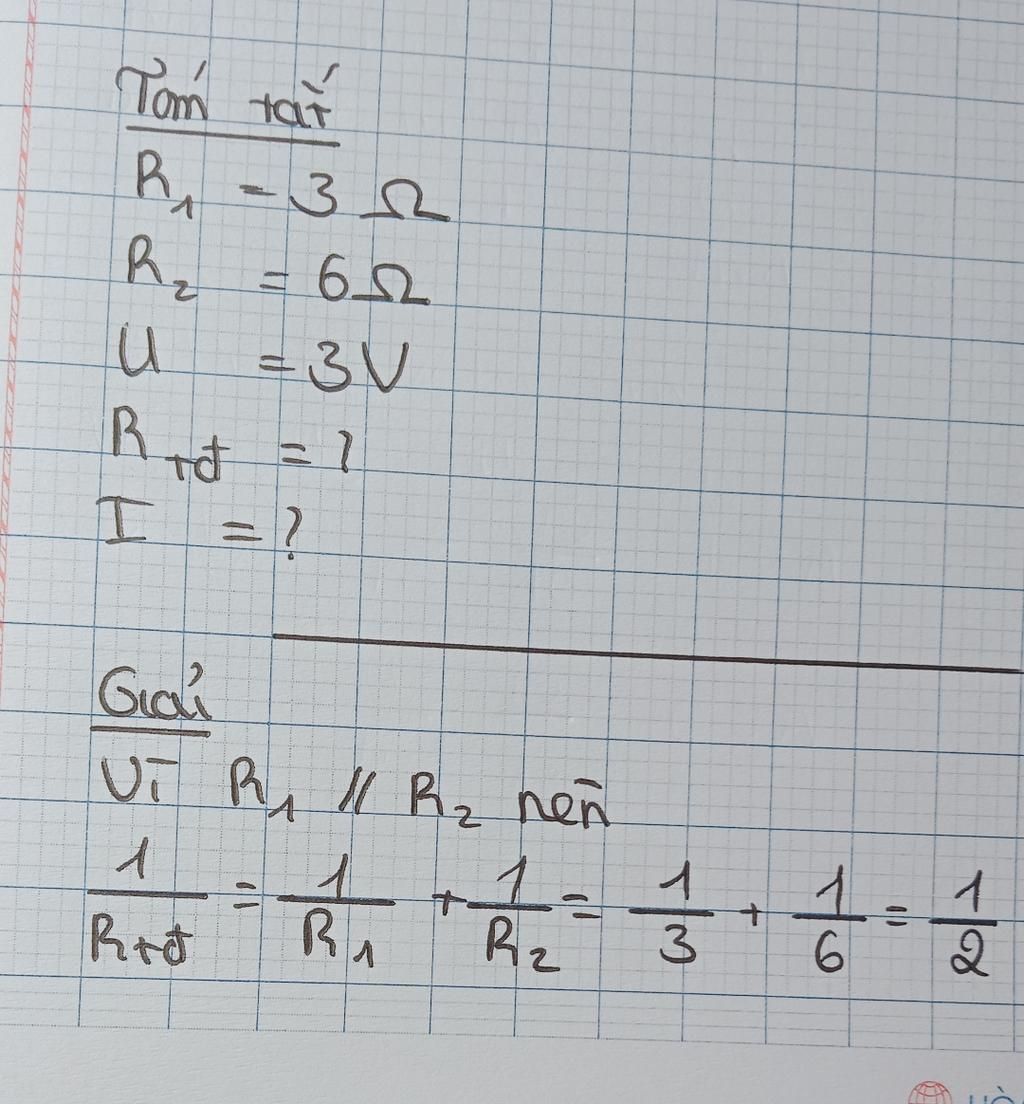 Tóm tắt
R₁ = 3 Ω
R₂ = 6 Ω
U = 3V
R tđ = ?
I = ?
Giải
Vì R₁ // R₂ nên
1/Rtđ = 1/R₁ + 1/R₂ = 1/3 + 1/6 = 1/2